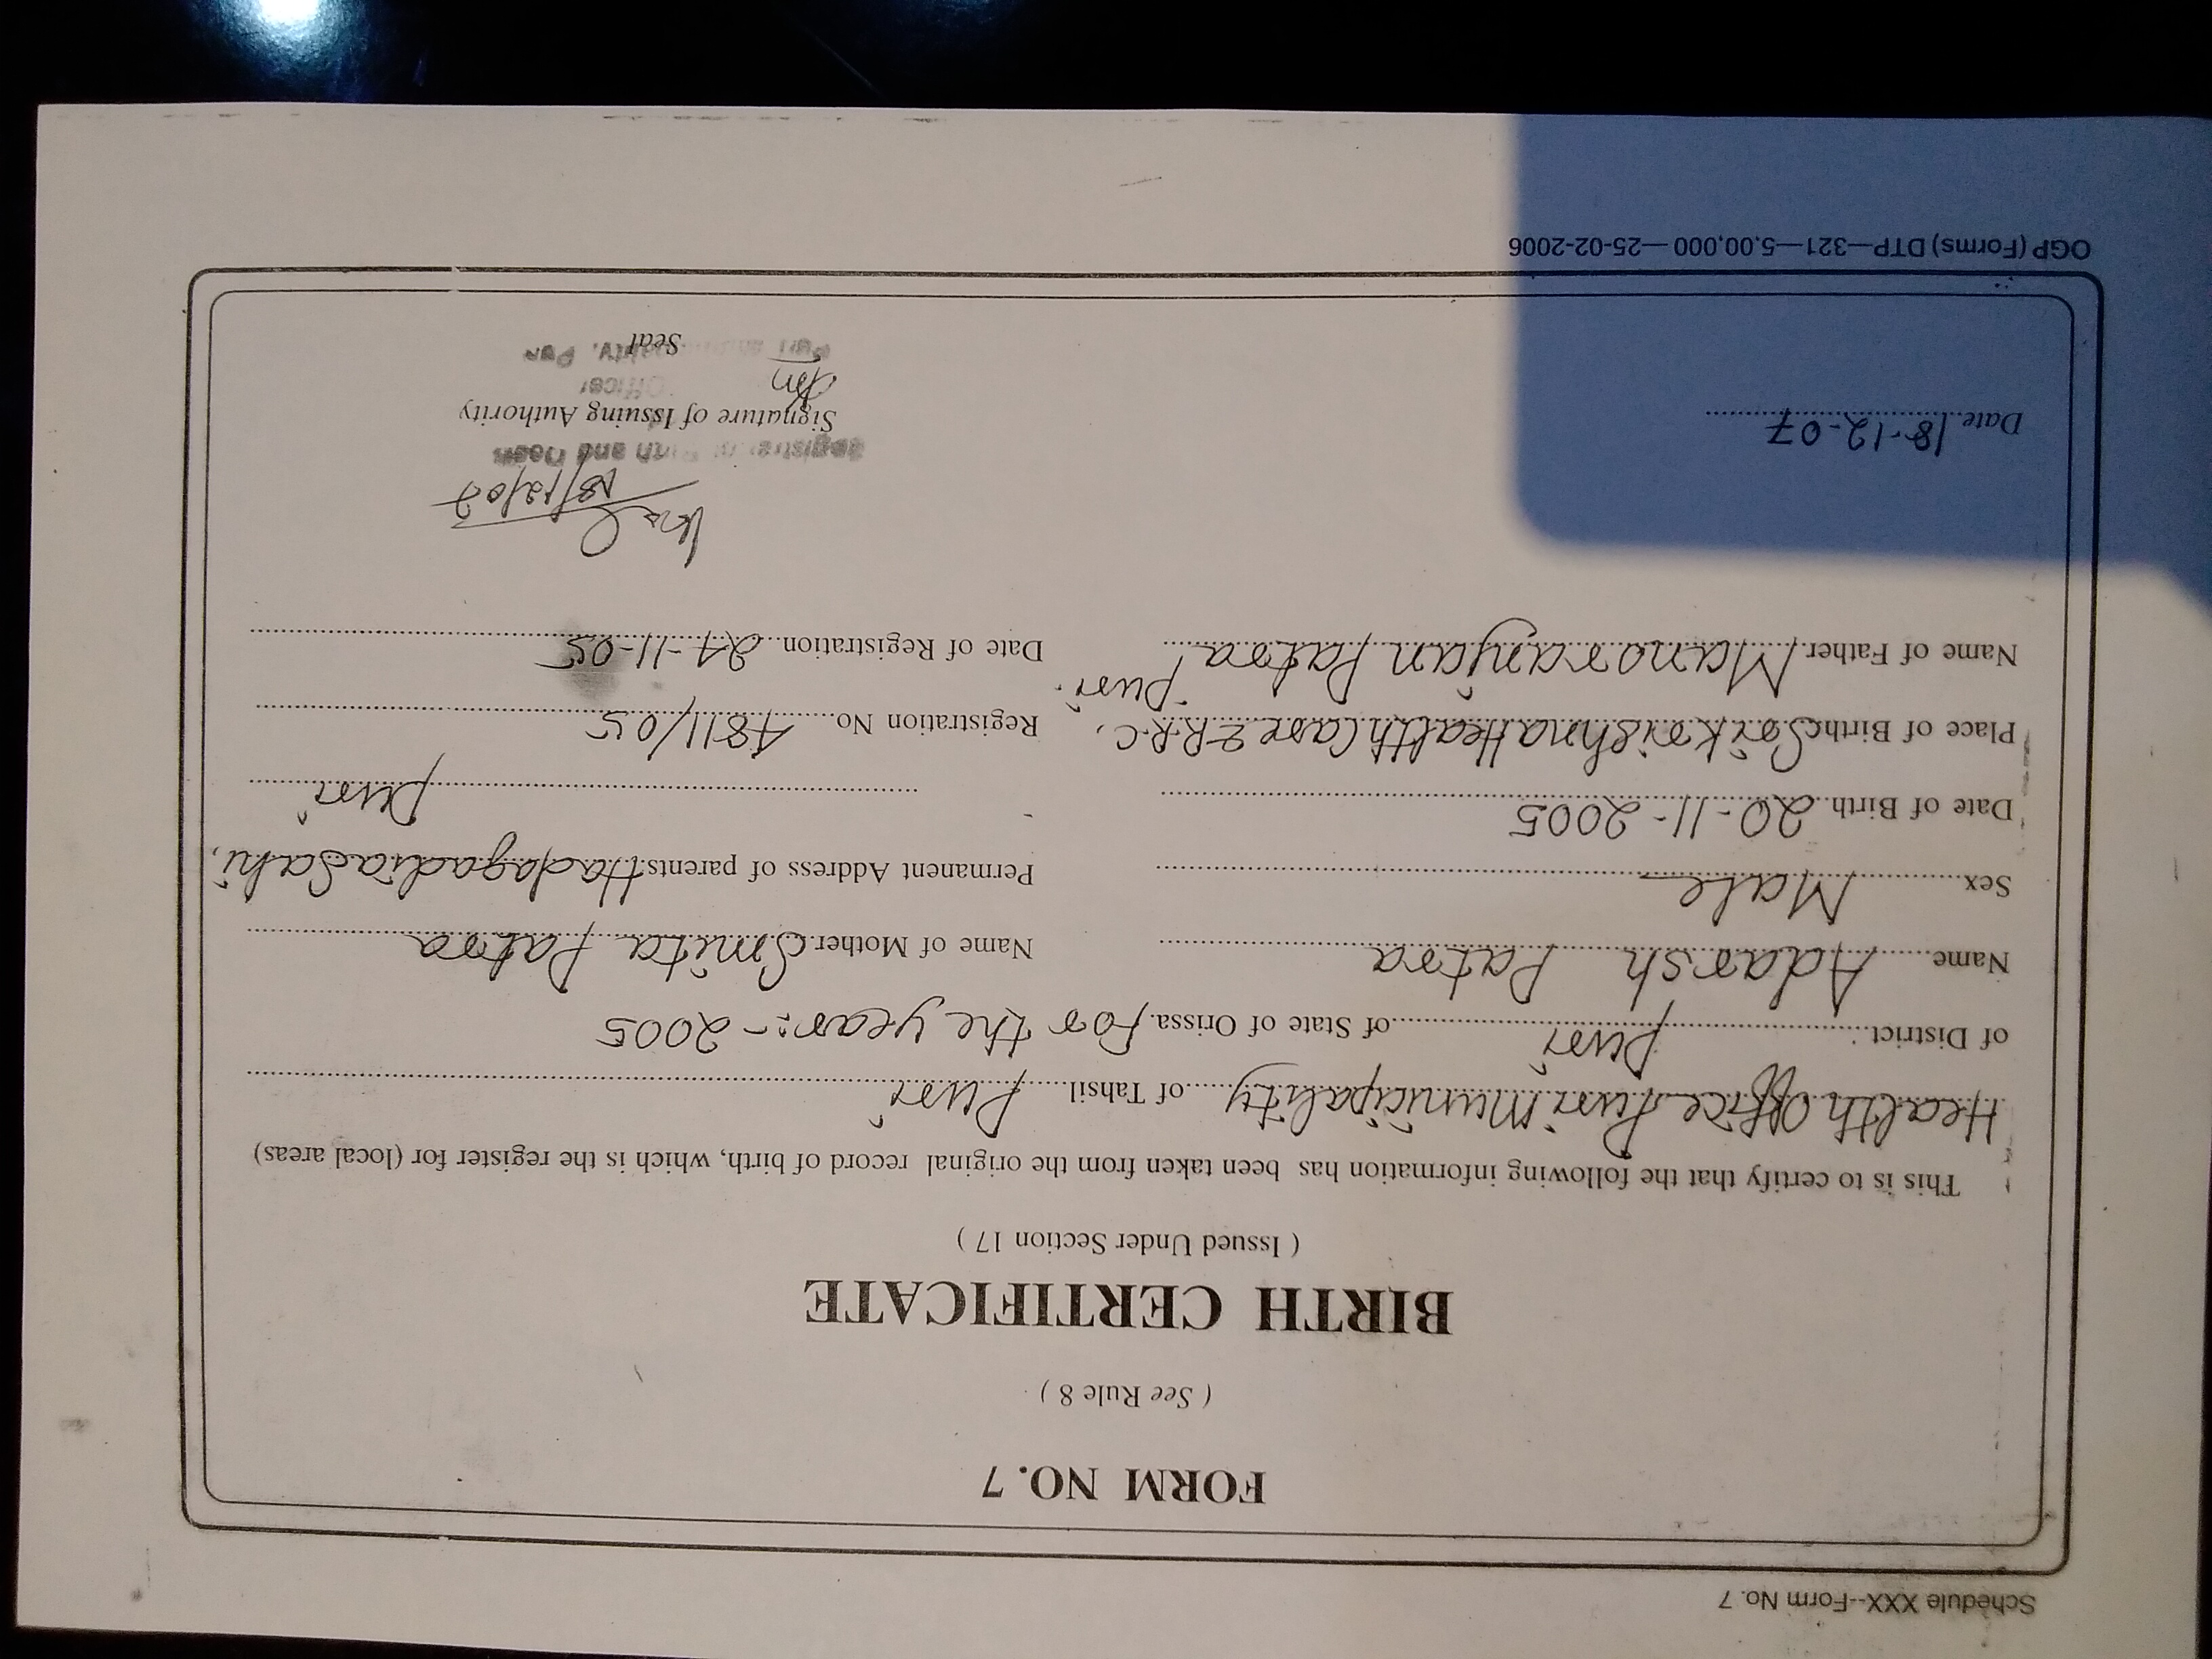 Schedule XXX--Form No. 7
FORM NO. 7
( See Rule 8 )
BIRTH CERTIFICATE
( Issued Under Section 17 )
This is to certify that the following information has been taken from the original record of birth, which is the register for (local areas)
Health Office Puri Municipality of Tahsil Puri
of District Puri of State of Orissa. For the year:- 2005
Name Adarsh Patra
Sex Male
Date of Birth 20-11-2005
Place of Birth Sri Krishna Health Care & R.R.C, Puri.
Name of Father Manoranjan Patra
Name of Mother Smita Patra
Permanent Address of parents Hadagadia Sahi,
Puri
Registration No. 4811/05
Date of Registration 24-11-05
Date 18-12-07
18/12/07
Signature of Issuing Authority
Seal
OGP (Forms) DTP—321—5,00,000—25-02-2006